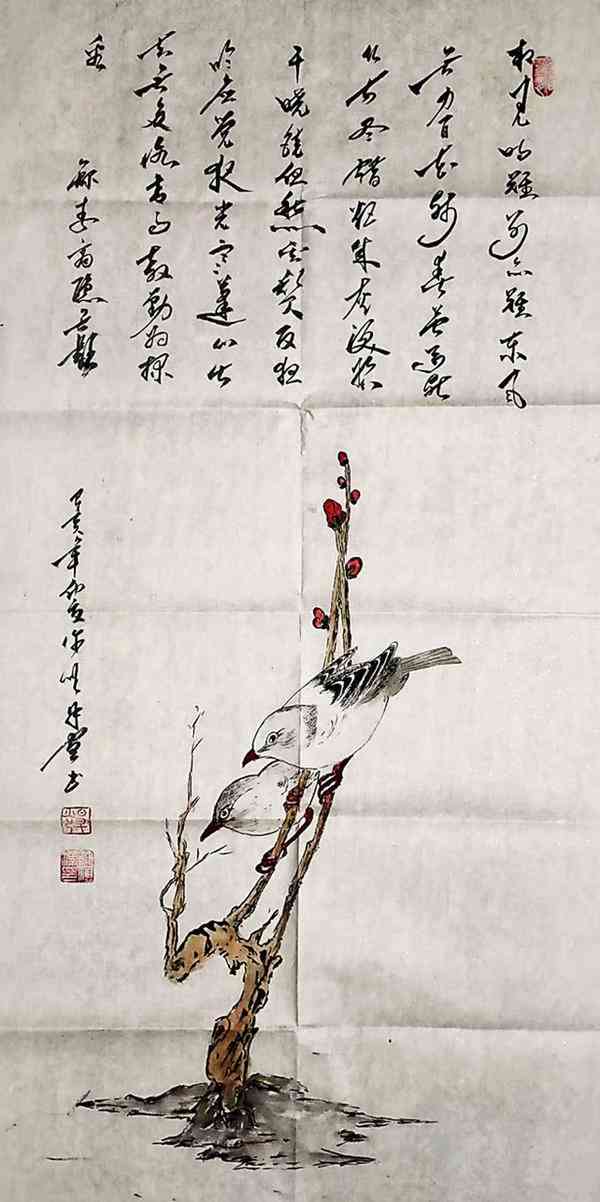 相见时难别亦难东风
无力百花残春蚕到死
丝方尽蜡炬成灰泪始
干晓镜但愁云鬓改夜
吟应觉光寒蓬山此
去无多路青鸟殷勤为探
看
录李商隐无题
年书